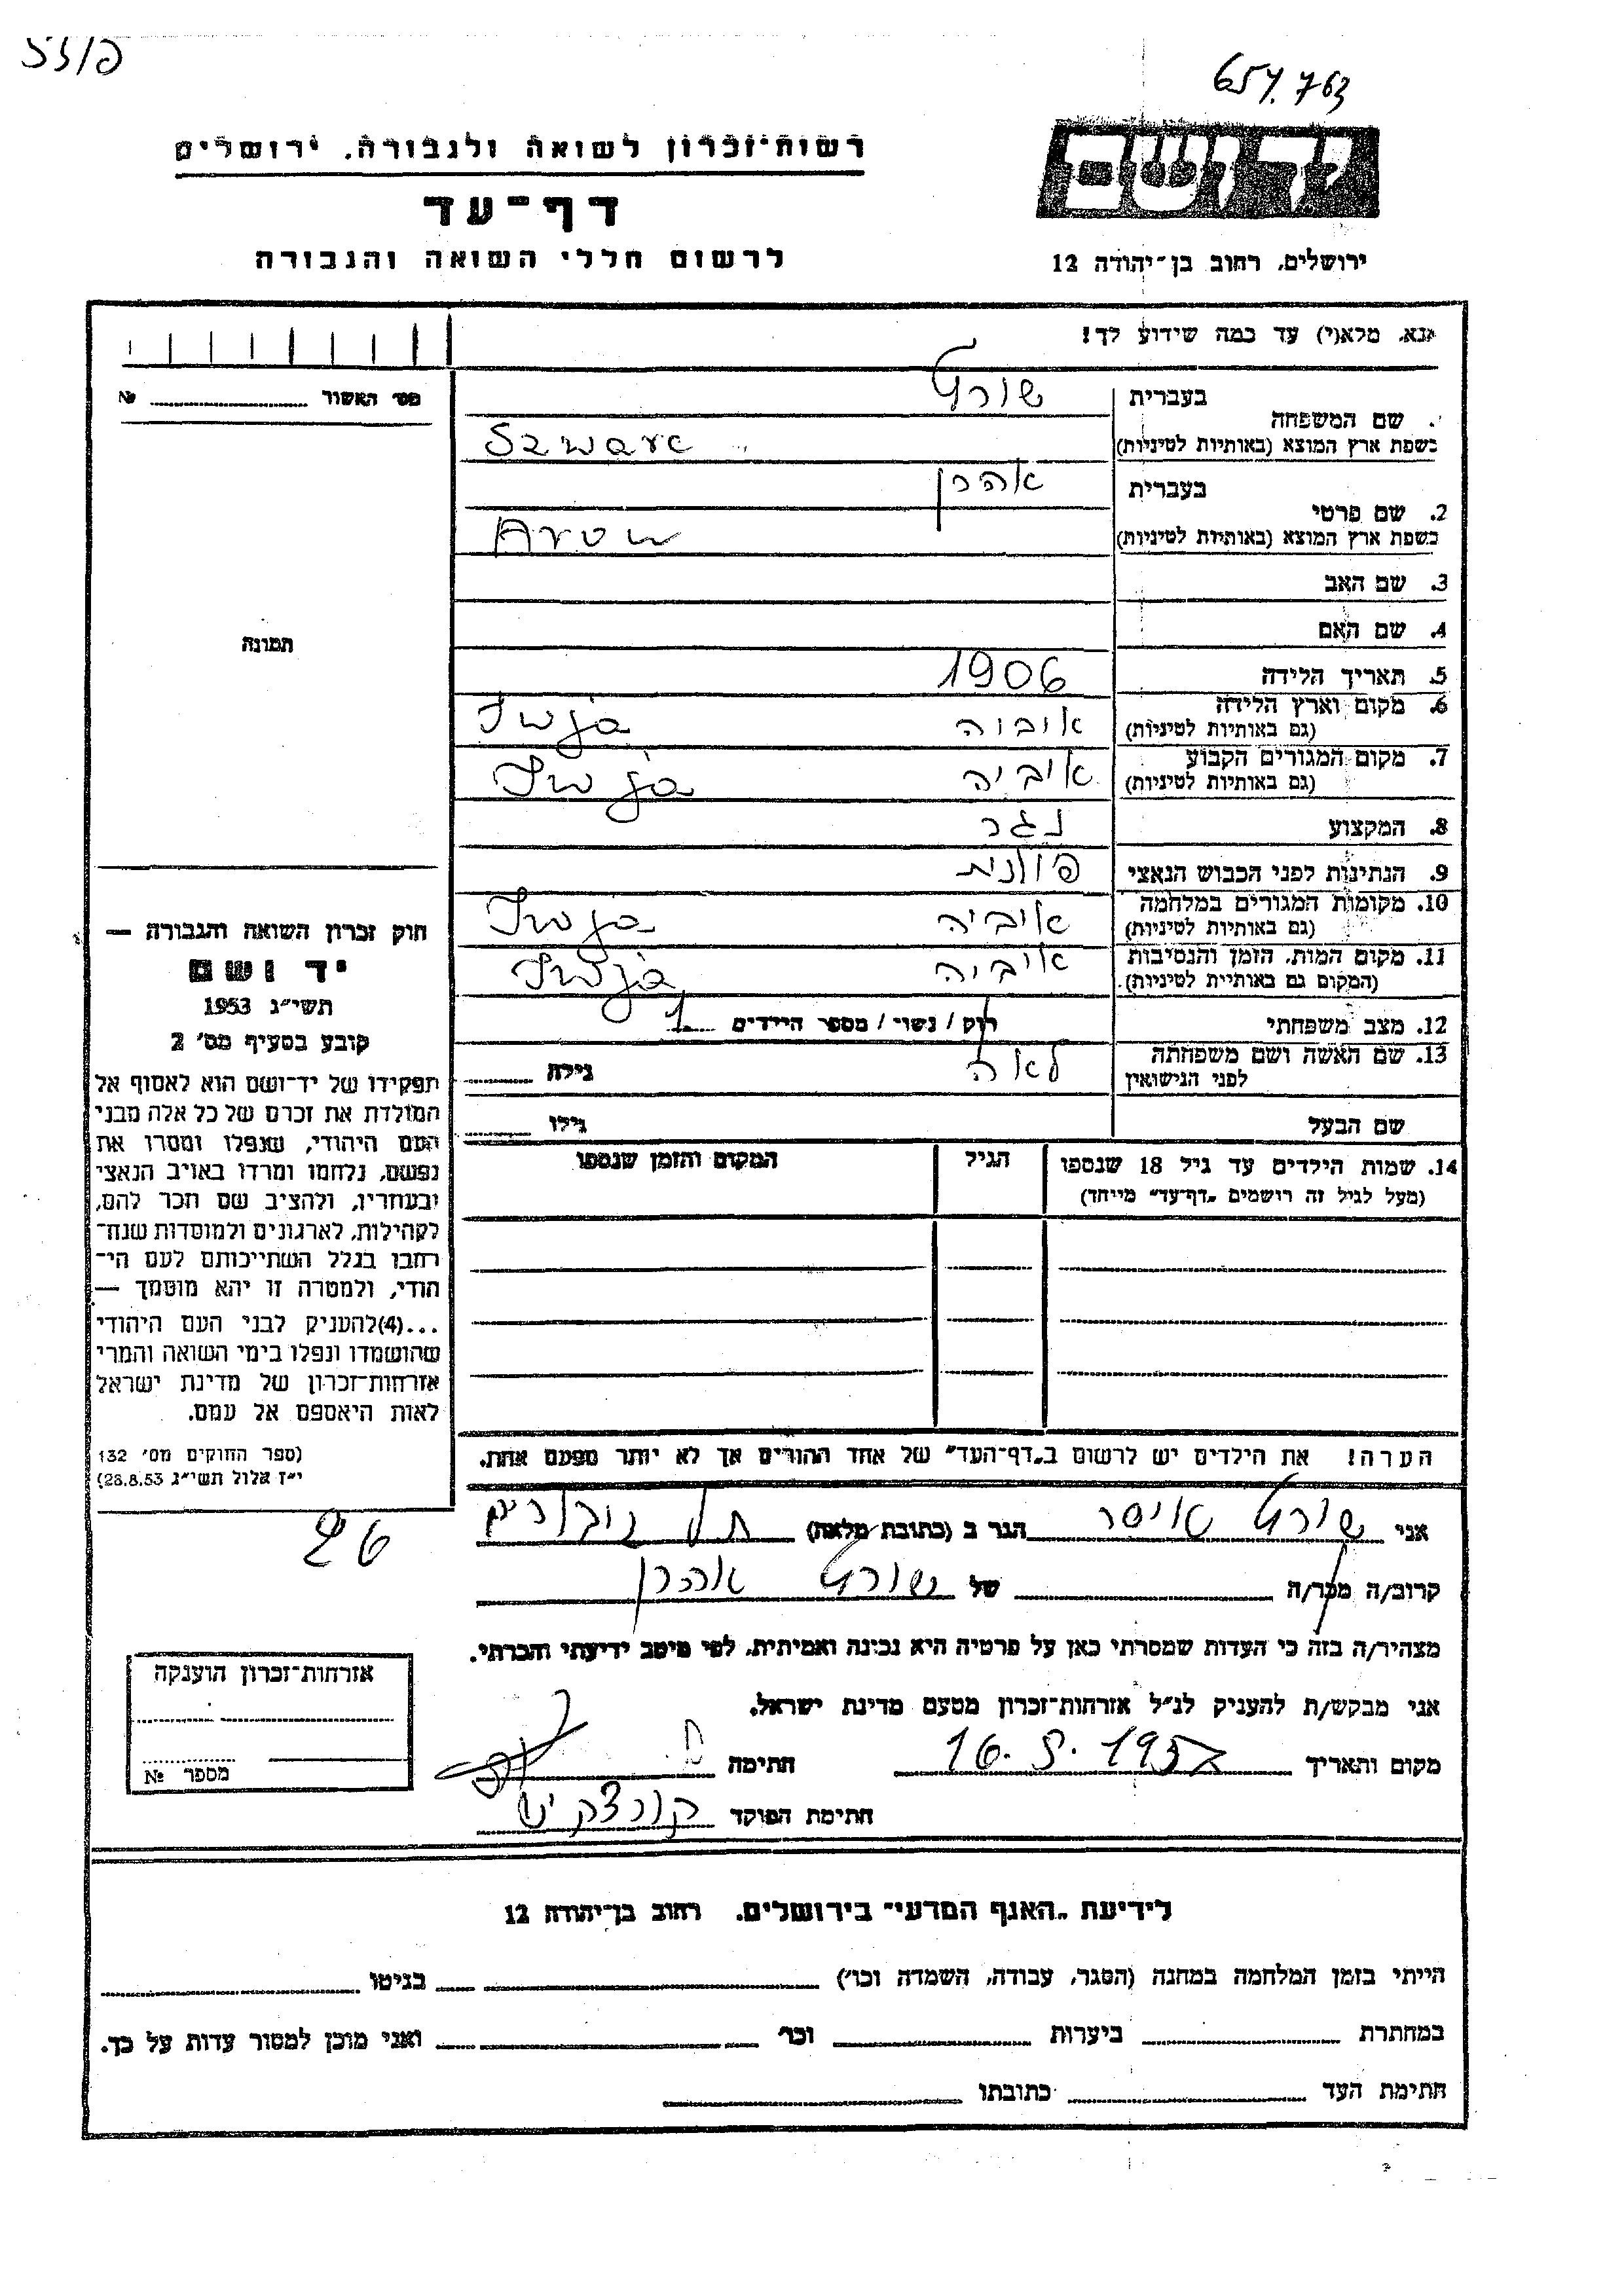 657.763
רשות־זכרון לשואה ולגבורה, ירושלים
דף־עד
לרשום חללי השואה והגבורה
יד ושם
ירושלים, רחוב בן־יהודה 12
נא, מלא(י) עד כמה שידוע לך!
מס׳ האשור № 
שם המשפחה
בעברית שורץ
בשפת ארץ המוצא (באותיות לטיניות) Szwarc
2. שם פרטי
בעברית אהרן
בשפת ארץ המוצא (באותיות לטיניות) Aron
3. שם האב
4. שם האם
תמונה
5. תאריך הלידה 1906
6. מקום וארץ הלידה
(גם באותיות לטיניות) Iwja
7. מקום המגורים הקבוע
(גם באותיות לטיניות) אוביה Iwja
8. המקצוע נגר
9. הנתינות לפני הכבוש הנאצי פולנית
10. מקומות המגורים במלחמה
(גם באותיות לטיניות) אוביה Iwja
11. מקום המות, הזמן והנסיבות
(המקום גם באותיות לטיניות) אוביה Iwja
12. מצב משפחתי רוק / נשוי / מספר הילדים 1
13. שם האשה ושם משפחתה
לפני הנישואין לאה גילה
שם הבעל גילו
14. שמות הילדים עד גיל 18 שנספו
(מעל לגיל זה רושמים „דף־עד״ מייחד)
הגיל
המקום והזמן שנספו
חוק זכרון השואה והגבורה —
יד ושם
תשי״ג 1953
קובע בסעיף מס׳ 2
תפקידו של יד־ושם הוא לאסוף אל
המולדת את זכרם של כל אלה מבני
העם היהודי, שנפלו ומסרו את
נפשם, נלחמו ומרדו באויב הנאצי
ובעוזריו, ולהציב שם וזכר להם,
לקהילות, לארגונים ולמוסדות שנח־
רחבו בגלל השתייכותם לעם הי־
הודי, ולמטרה זו יהא מוסמך —
...(4) להעניק לבני העם היהודי
שהושמדו ונפלו בימי השואה והמרי
אזרחות־זכרון של מדינת ישראל
לאות היאספם אל עמם.
(ספר החוקים מס׳ 132
י״ז אלול תשי״ג 28.8.53)
הערה! את הילדים יש לרשום ב„דף־העד״ של אחד ההורים אך לא יותר מפעם אחת.
אני שורץ איסר הגר ב (כתובת מלאה)
קרוב/ה מכר/ה של שורץ אהרן
מצהיר/ה בזה כי העדות שמסרתי כאן על פרטיה היא נכונה ואמיתית, לפי מיטב ידיעתי והכרתי.
אני מבקש/ת להעניק לנ״ל אזרחות־זכרון מטעם מדינת ישראל.
מקום ותאריך 16. 5. 1957 חתימה
חתימת הפוקד
אזרחות־זכרון הוענקה
מספר №
לידיעת „האגף המדעי״ בירושלים, רחוב בן־יהודה 12
הייתי בזמן המלחמה במחנה (הסגר, עבודה, השמדה וכו׳) בגיטו
במחתרת ביערות וכו׳ ואני מוכן למסור עדות על כך.
חתימת העד כתובתו